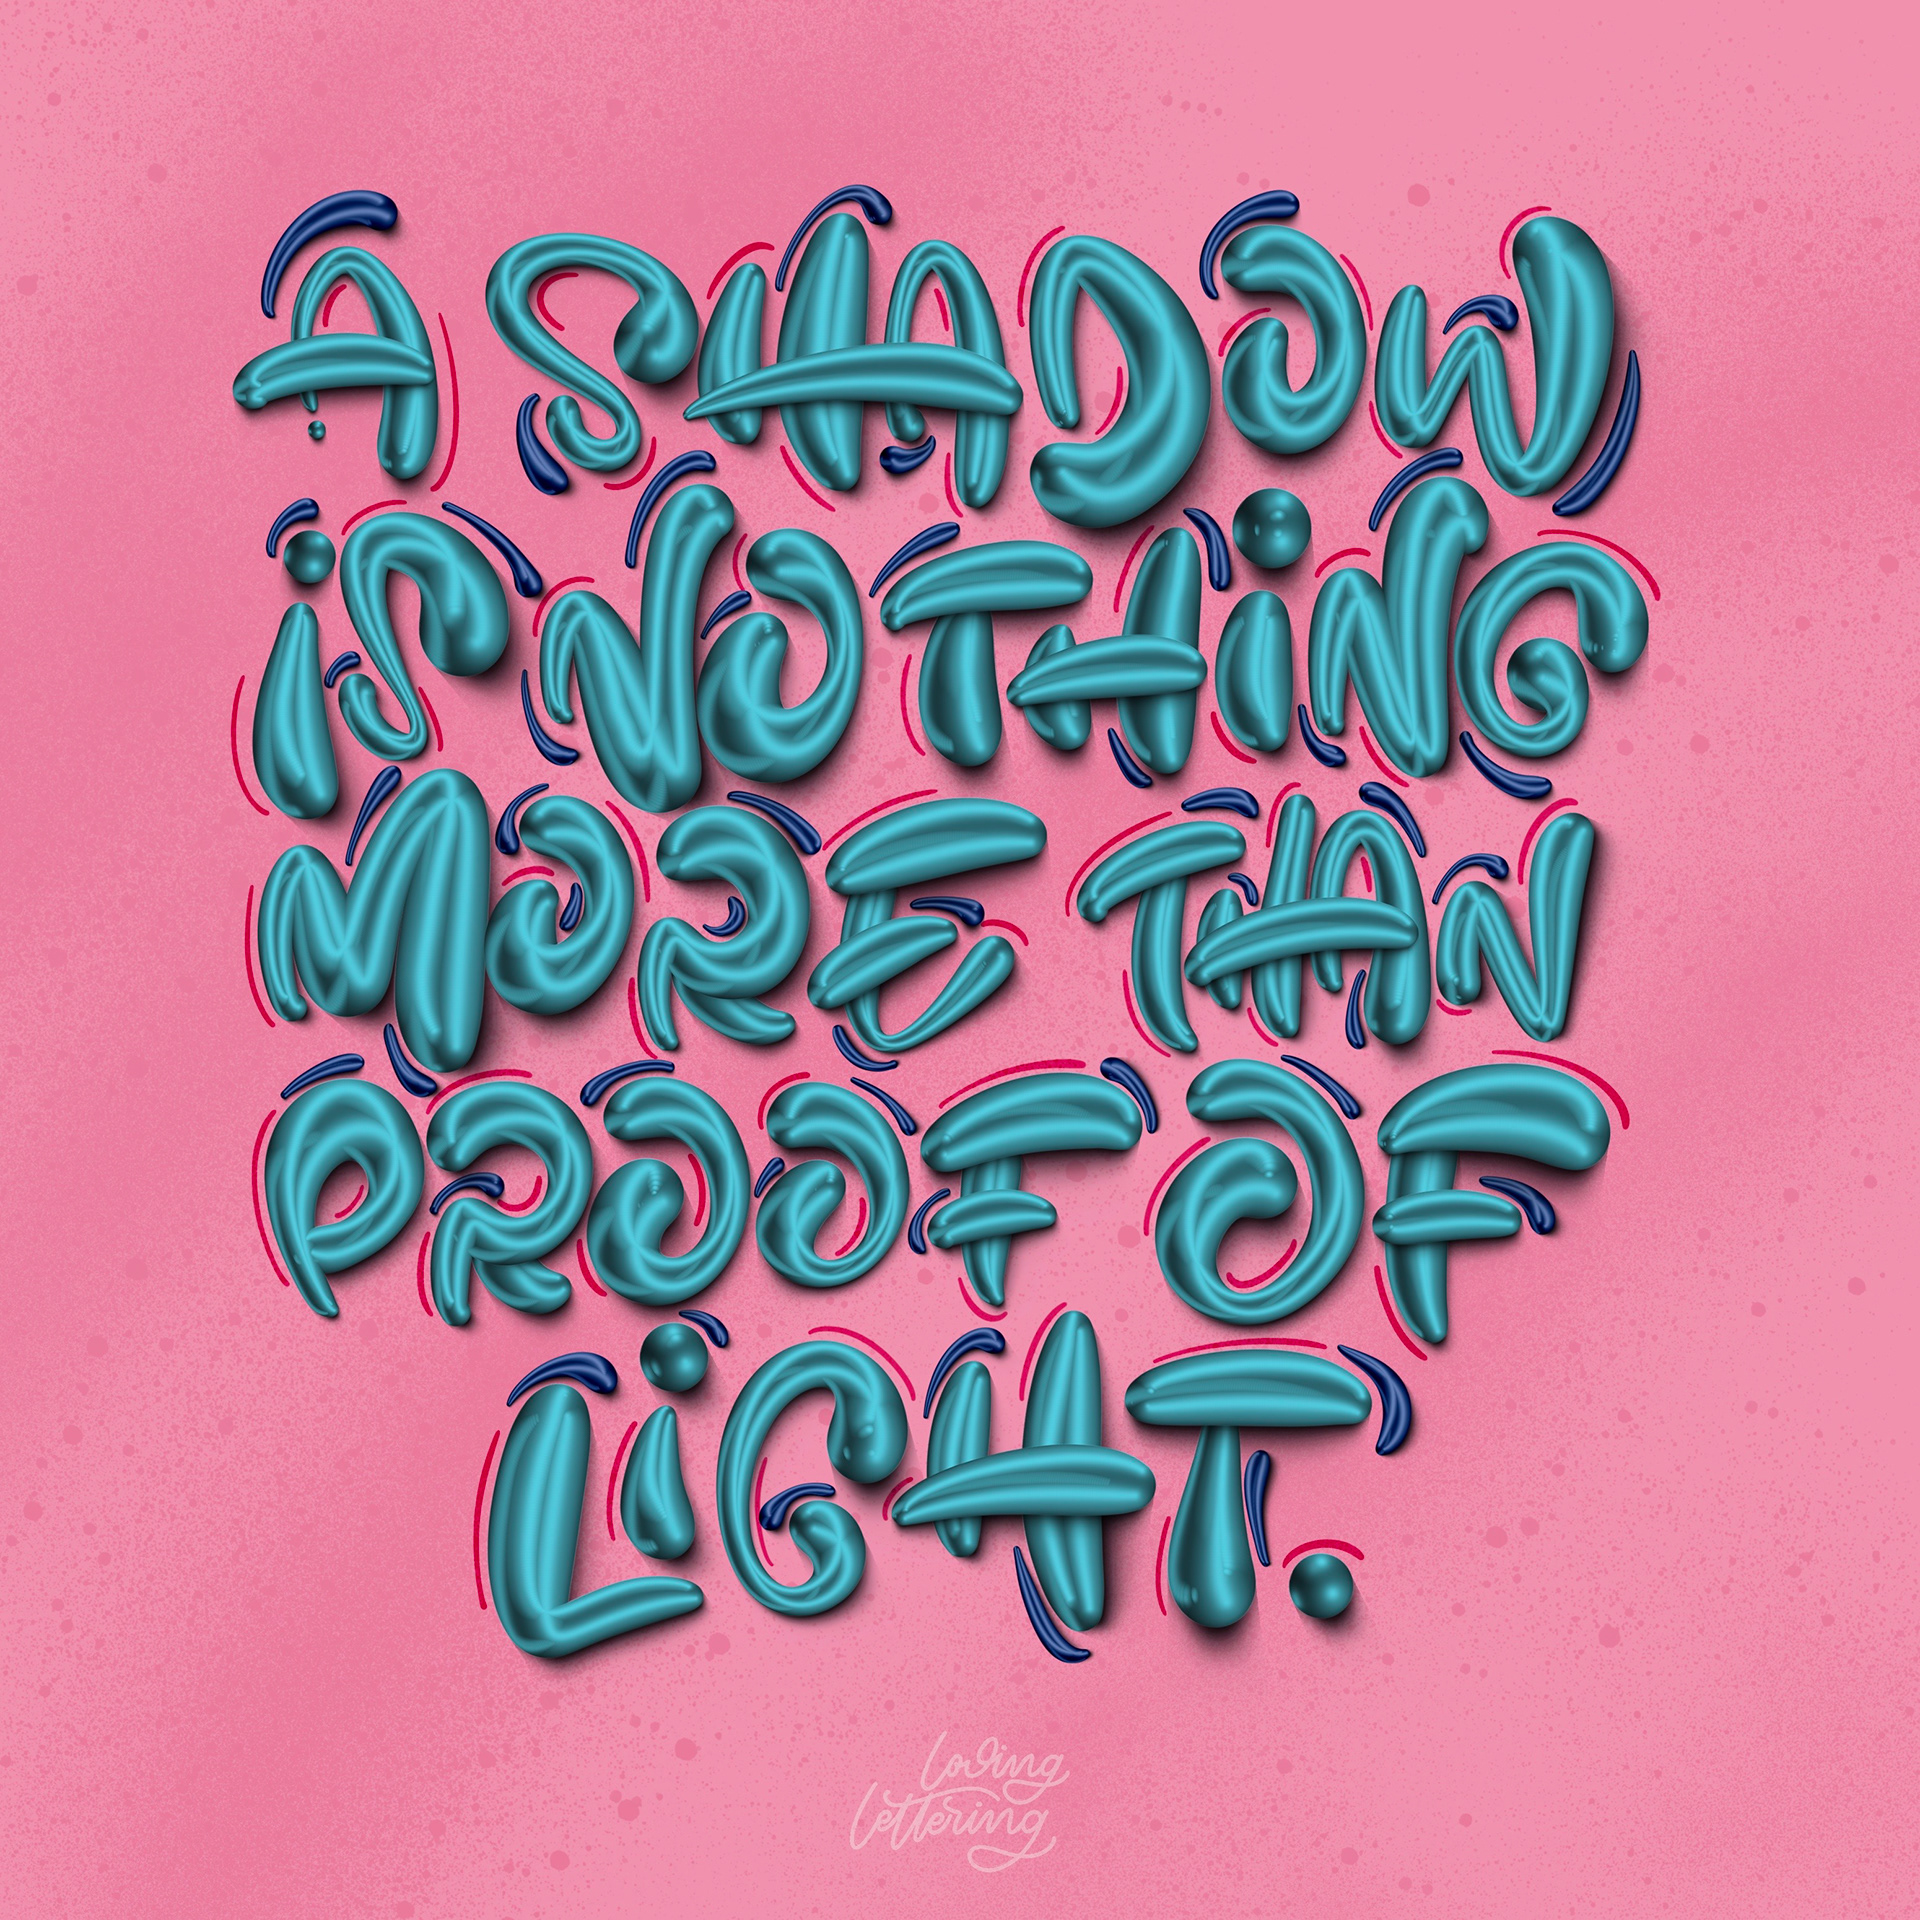 A SHADOW
iS NOTHiNG
MORE THAN
PROOF OF
LiGHT.
loving
lettering